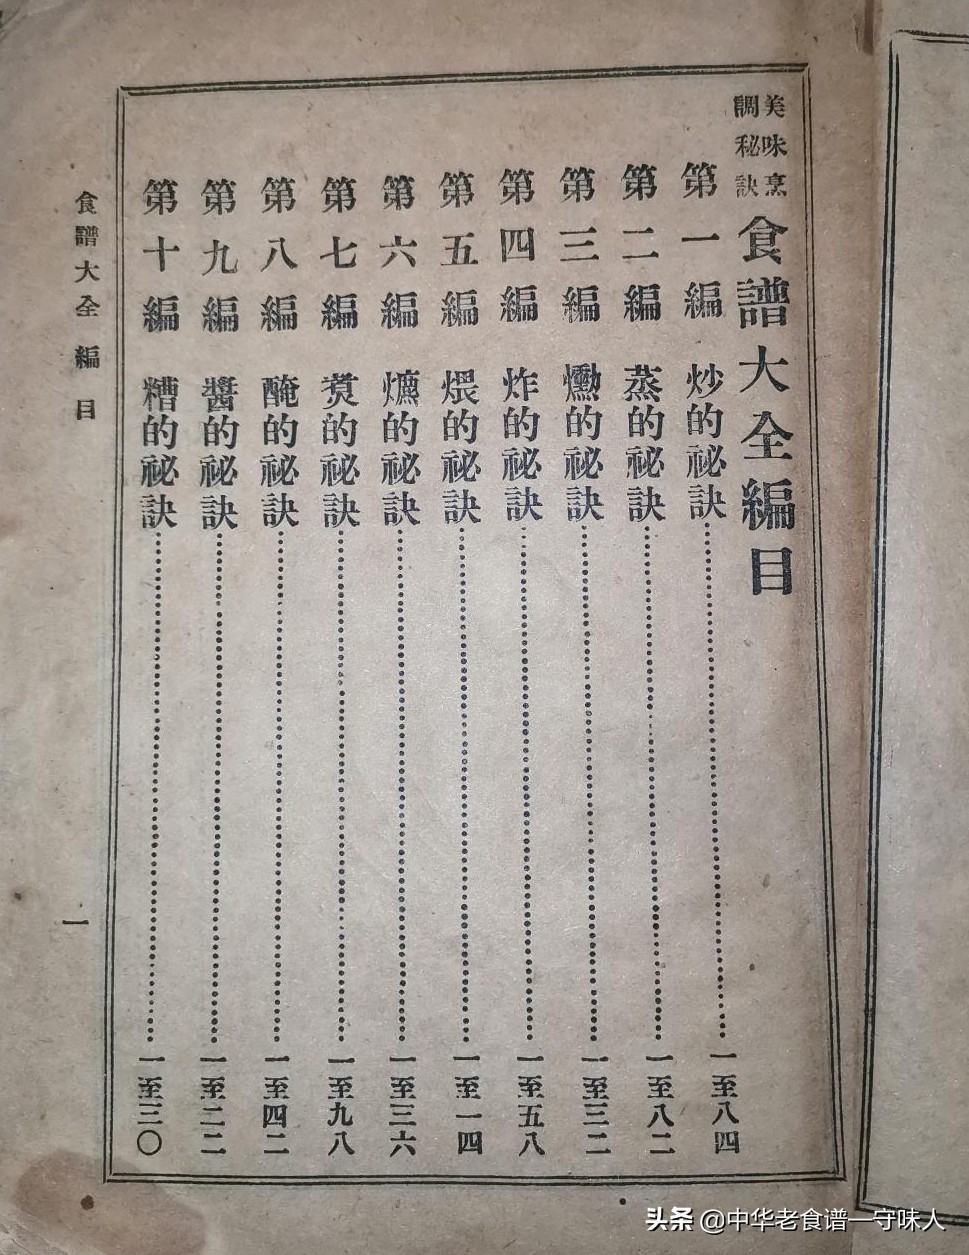 美味烹調秘訣 食譜大全編目
第一編 炒的祕訣……一至八四
第二編 蒸的祕訣……一至八二
第三編 燻的祕訣……一至三二
第四編 炸的祕訣……一至五八
第五編 煨的祕訣……一至一四
第六編 爊的祕訣……一至三六
第七編 煑的祕訣……一至九八
第八編 醃的祕訣……一至四二
第九編 醬的祕訣……一至二二
第十編 糟的祕訣……一至三〇
食譜大全 編目
一
头条 @中华老食谱一守味人